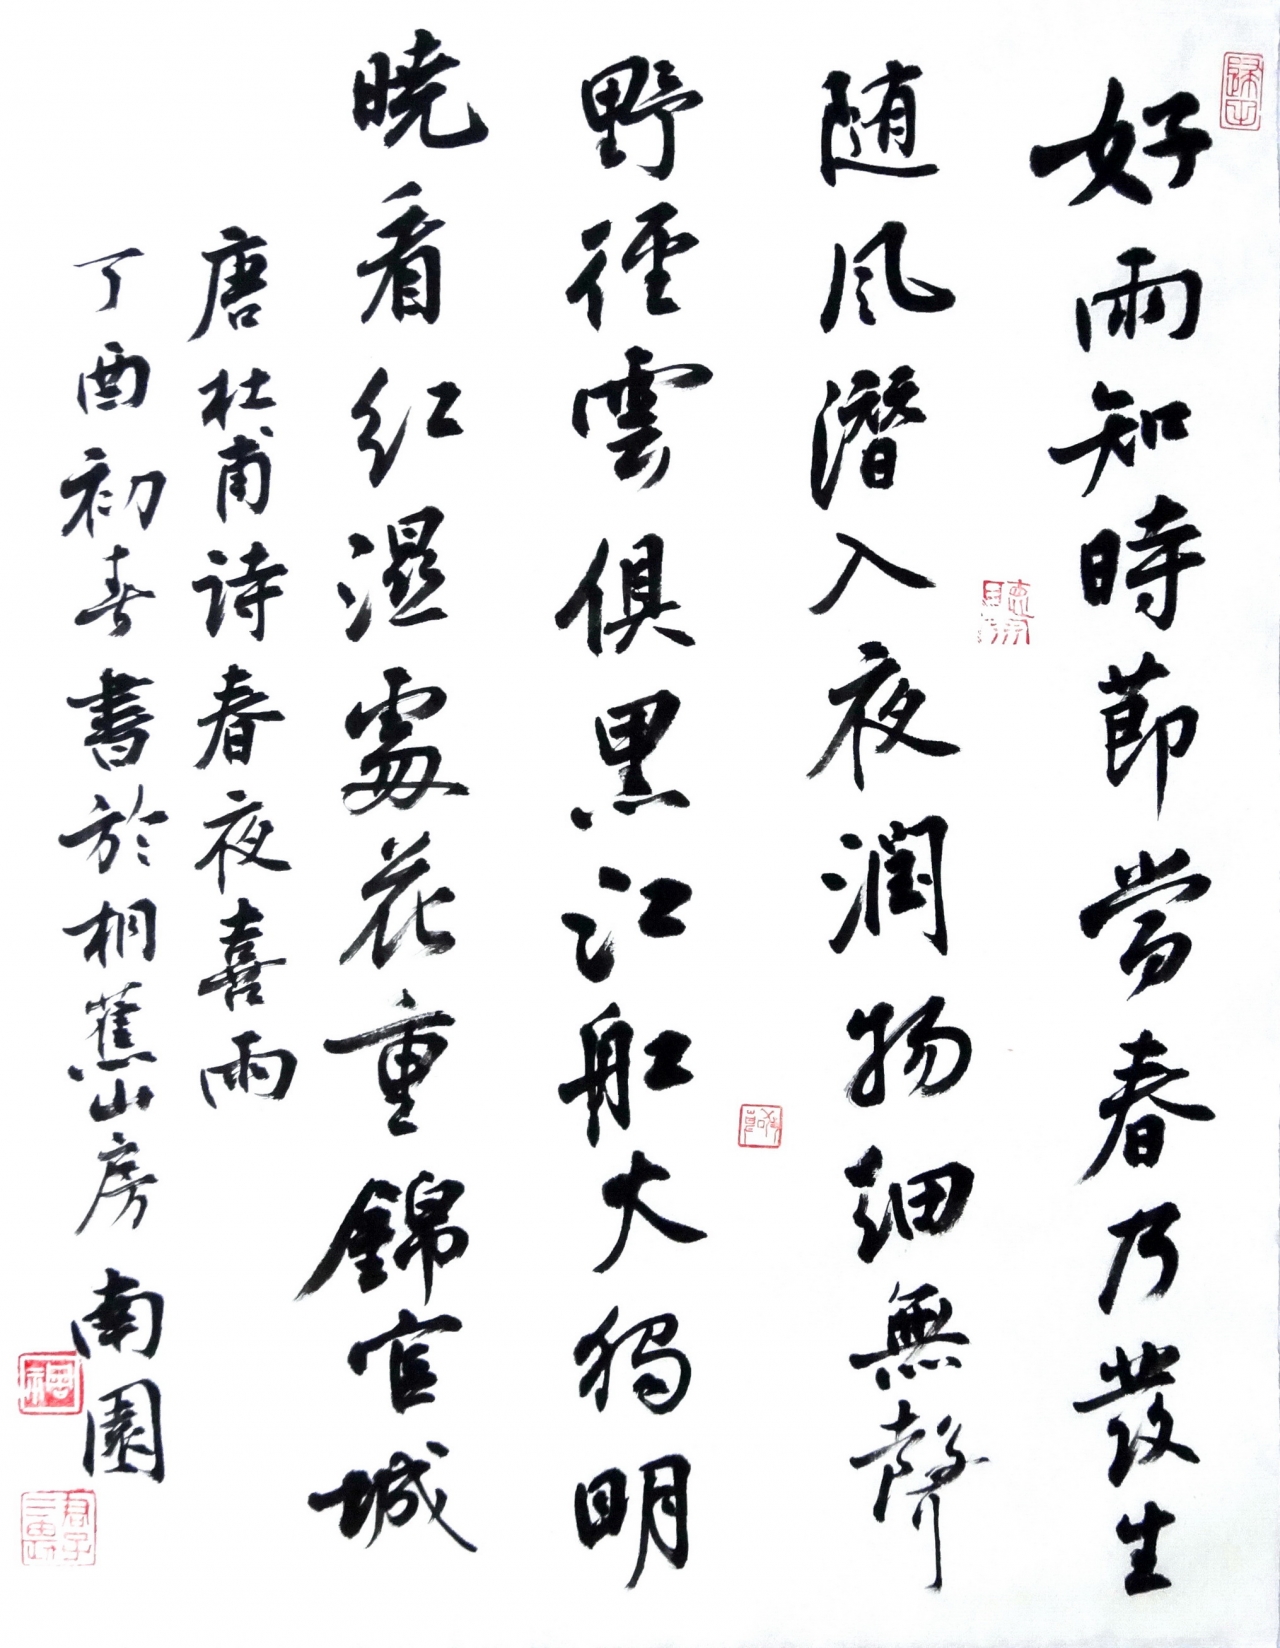 好雨知時節當春乃發生
随風潛入夜潤物細無聲
野徑雲俱黑江船火獨明
曉看紅濕處花重錦官城
唐杜甫詩春夜喜雨
丁酉初春書於桐蕉山房 南園